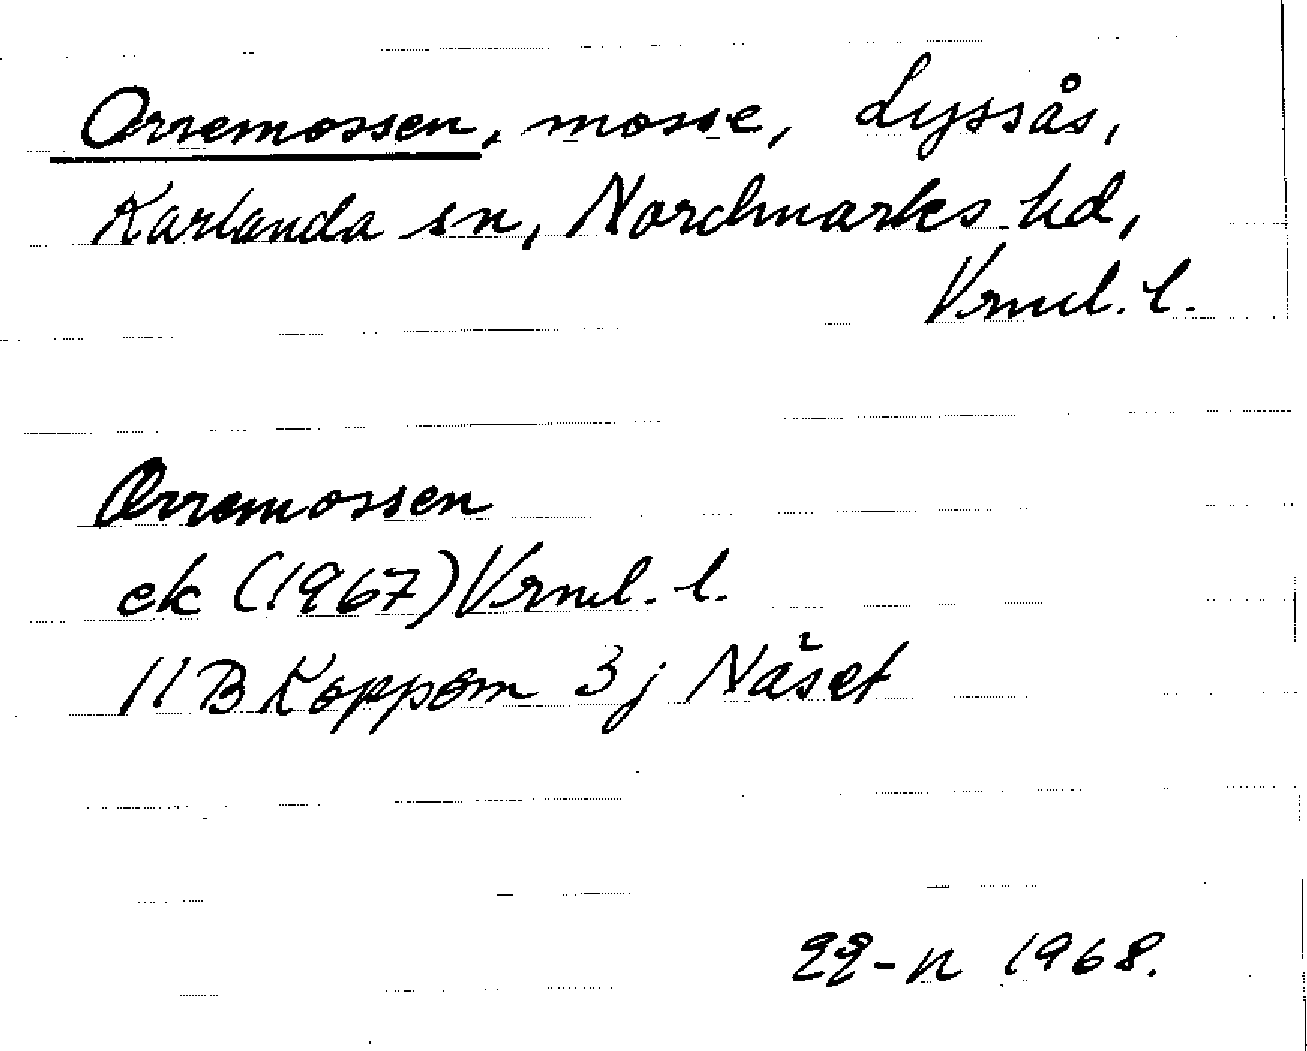 Orremossen, mosse, Lyssås,
Karlanda sn, Nordmarks hd,
Vrml. l.
Orremossen
ek (1967) Vrml. l.
11B Koppom 3j Näset
1968.